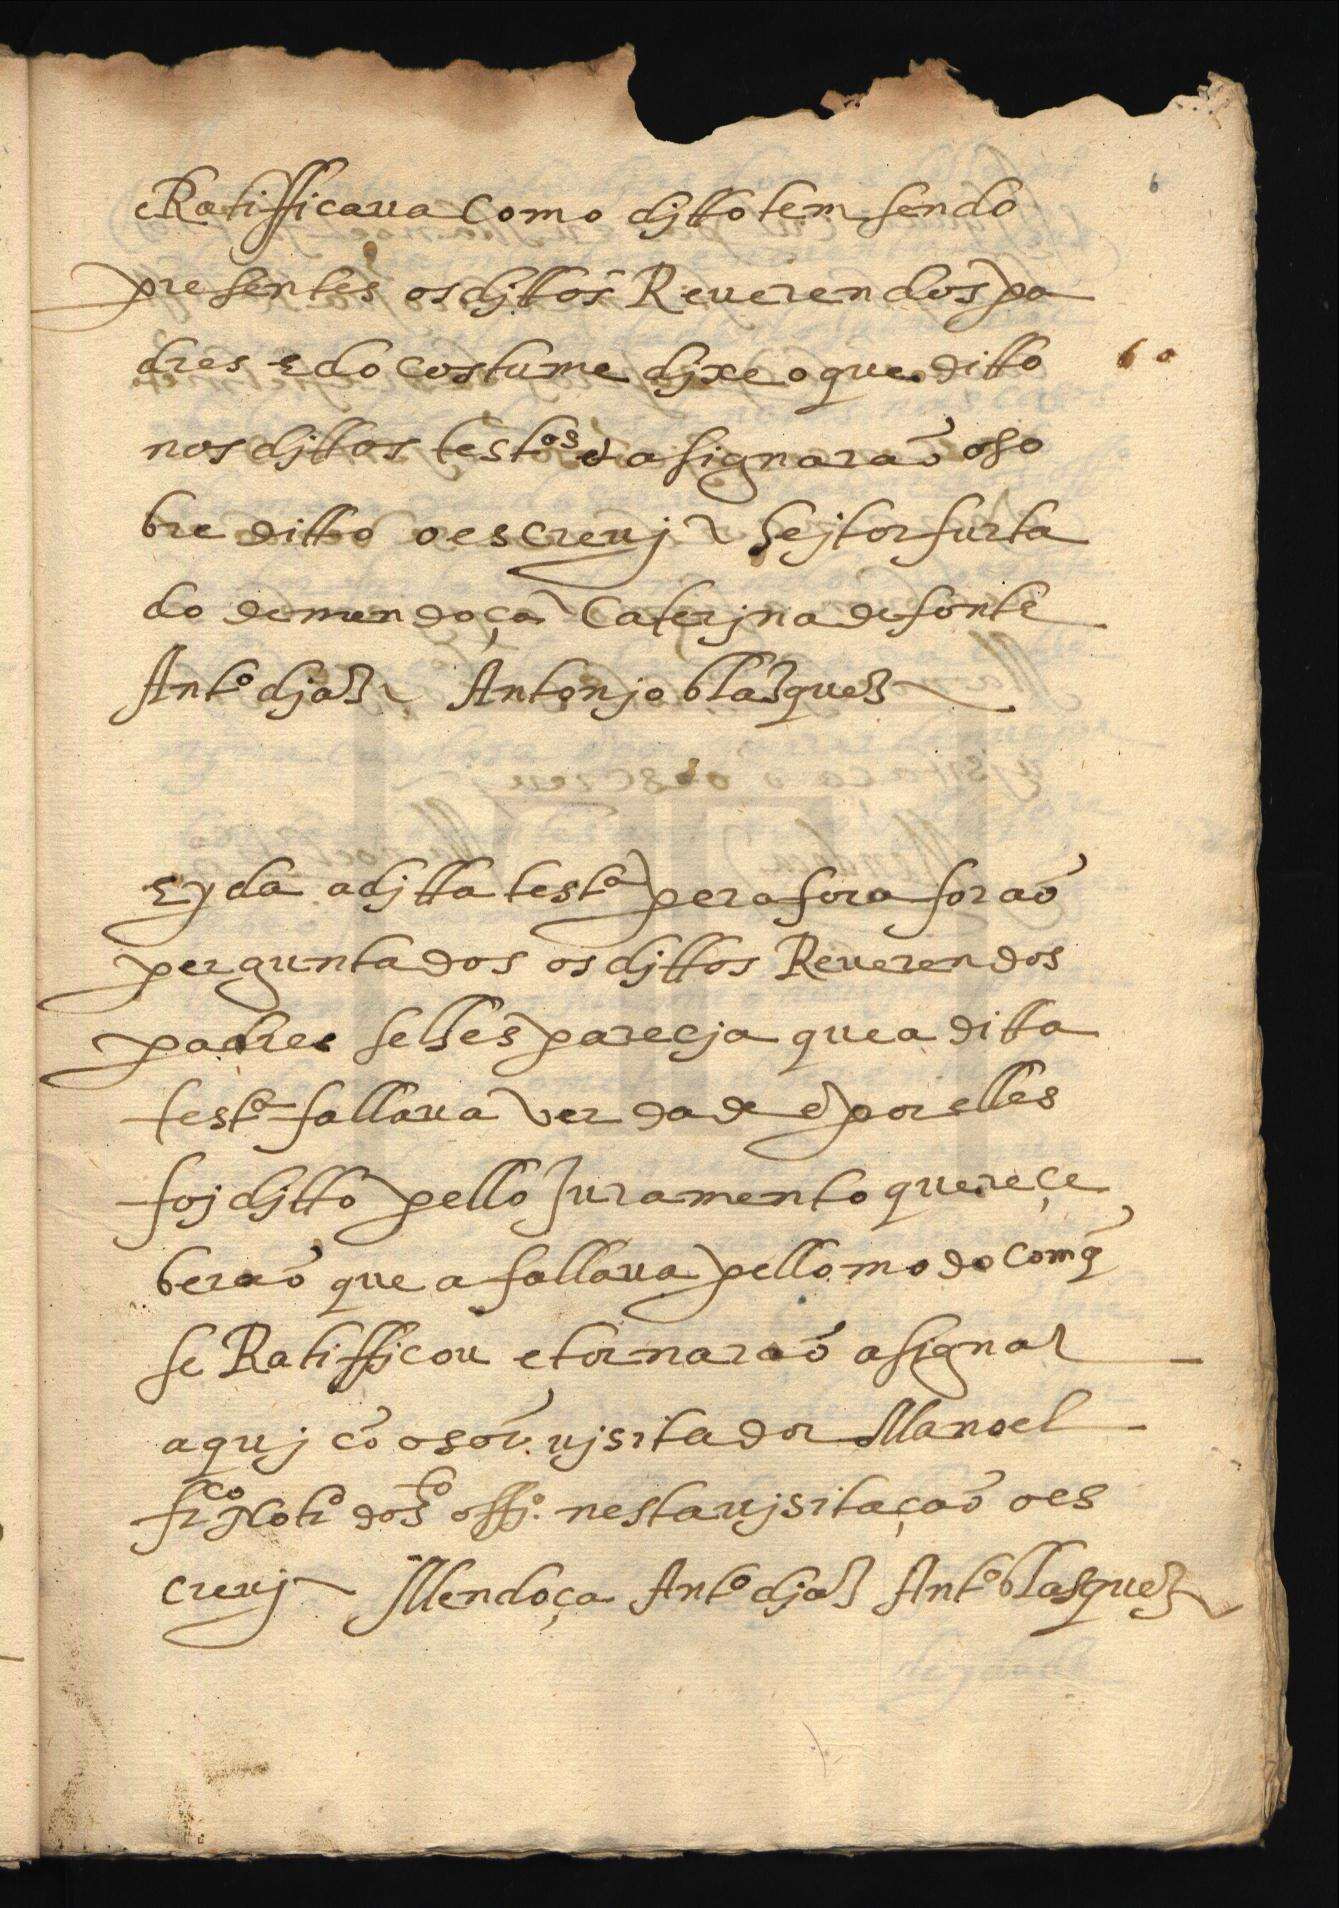 e Ratifficaua Como djtto tem sendo
presentes os djttos Reuerendos pa
dres e do costume djxe o que ditto
nos djttos testos e asignaraõ o so
bre ditto o escreuj hejtor furta
do de mendoça Caterjna de fonte
Anto djaz Antonjo blazquez
E yda a djtta testa pera fora foraõ
perguntados os djttos Reuerendos
padres se lhes parecja que a ditta
testa fallaua verdade e por elles
foj djtto pello Juramento que reçe
beraõ que a fallaua pello modo com q̃
se Ratifficou e tornaraõ asignar
aquj cõ o sõr. ujsitador Manoel
frco notro do sto offjo. nesta ujsitaçaõ o es
creuj Mendoça Anto djaz Anto blazquez